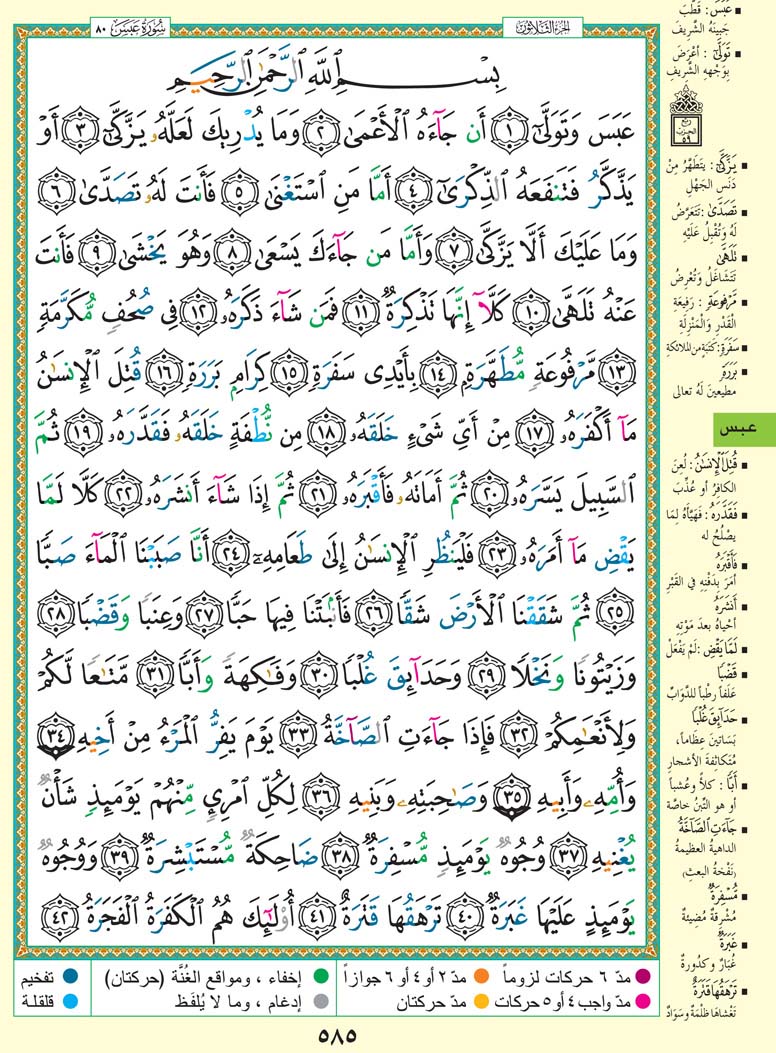 سُورَةُ عَبَسَ ٨٠
الجزء الثلاثون
بِسْمِ ٱللَّهِ ٱلرَّحْمَٰنِ ٱلرَّحِيمِ
عَبَسَ وَتَوَلَّىٰٓ ﴿١﴾ أَن جَآءَهُ ٱلْأَعْمَىٰ ﴿٢﴾ وَمَا يُدْرِيكَ لَعَلَّهُۥ يَزَّكَّىٰٓ ﴿٣﴾ أَوْ
يَذَّكَّرُ فَتَنفَعَهُ ٱلذِّكْرَىٰٓ ﴿٤﴾ أَمَّا مَنِ ٱسْتَغْنَىٰ ﴿٥﴾ فَأَنتَ لَهُۥ تَصَدَّىٰ ﴿٦﴾
وَمَا عَلَيْكَ أَلَّا يَزَّكَّىٰ ﴿٧﴾ وَأَمَّا مَن جَآءَكَ يَسْعَىٰ ﴿٨﴾ وَهُوَ يَخْشَىٰ ﴿٩﴾ فَأَنتَ
عَنْهُ تَلَهَّىٰ ﴿١٠﴾ كَلَّآ إِنَّهَا تَذْكِرَةٌ ﴿١١﴾ فَمَن شَآءَ ذَكَرَهُۥ ﴿١٢﴾ فِى صُحُفٍ مُّكَرَّمَةٍ
﴿١٣﴾ مَّرْفُوعَةٍ مُّطَهَّرَةٍۭ ﴿١٤﴾ بِأَيْدِى سَفَرَةٍ ﴿١٥﴾ كِرَامٍۭ بَرَرَةٍ ﴿١٦﴾ قُتِلَ ٱلْإِنسَٰنُ
مَآ أَكْفَرَهُۥ ﴿١٧﴾ مِنْ أَىِّ شَىْءٍ خَلَقَهُۥ ﴿١٨﴾ مِن نُّطْفَةٍ خَلَقَهُۥ فَقَدَّرَهُۥ ﴿١٩﴾ ثُمَّ
ٱلسَّبِيلَ يَسَّرَهُۥ ﴿٢٠﴾ ثُمَّ أَمَاتَهُۥ فَأَقْبَرَهُۥ ﴿٢١﴾ ثُمَّ إِذَا شَآءَ أَنشَرَهُۥ ﴿٢٢﴾ كَلَّا لَمَّا
يَقْضِ مَآ أَمَرَهُۥ ﴿٢٣﴾ فَلْيَنظُرِ ٱلْإِنسَٰنُ إِلَىٰ طَعَامِهِۦٓ ﴿٢٤﴾ أَنَّا صَبَبْنَا ٱلْمَآءَ صَبًّا
﴿٢٥﴾ ثُمَّ شَقَقْنَا ٱلْأَرْضَ شَقًّا ﴿٢٦﴾ فَأَنۢبَتْنَا فِيهَا حَبًّا ﴿٢٧﴾ وَعِنَبًا وَقَضْبًا ﴿٢٨﴾
وَزَيْتُونًا وَنَخْلًا ﴿٢٩﴾ وَحَدَآئِقَ غُلْبًا ﴿٣٠﴾ وَفَٰكِهَةً وَأَبًّا ﴿٣١﴾ مَّتَٰعًا لَّكُمْ
وَلِأَنْعَٰمِكُمْ ﴿٣٢﴾ فَإِذَا جَآءَتِ ٱلصَّآخَّةُ ﴿٣٣﴾ يَوْمَ يَفِرُّ ٱلْمَرْءُ مِنْ أَخِيهِ ﴿٣٤﴾
وَأُمِّهِۦ وَأَبِيهِ ﴿٣٥﴾ وَصَٰحِبَتِهِۦ وَبَنِيهِ ﴿٣٦﴾ لِكُلِّ ٱمْرِئٍ مِّنْهُمْ يَوْمَئِذٍ شَأْنٌ
يُغْنِيهِ ﴿٣٧﴾ وُجُوهٌ يَوْمَئِذٍ مُّسْفِرَةٌ ﴿٣٨﴾ ضَاحِكَةٌ مُّسْتَبْشِرَةٌ ﴿٣٩﴾ وَوُجُوهٌ
يَوْمَئِذٍ عَلَيْهَا غَبَرَةٌ ﴿٤٠﴾ تَرْهَقُهَا قَتَرَةٌ ﴿٤١﴾ أُو۟لَٰٓئِكَ هُمُ ٱلْكَفَرَةُ ٱلْفَجَرَةُ ﴿٤٢﴾
عَبَسَ : قَطَّبَ
جَبينَهُ الشَّريفَ
تَوَلَّىٰٓ : أعْرَضَ
بِوَجْهِهِ الشَّريفِ
ربع
الحزب
٥٩
يَزَّكَّىٰٓ : يَتَطَهَّرُ مِنْ
دَنَسِ الجَهْلِ
تَصَدَّىٰ : تَتَعَرَّضُ
لَهُ وَتُقْبِلُ عَلَيْهِ
تَلَهَّىٰ
تَتَشَاغَلُ وَتُعْرِضُ
مَرْفُوعَةٍ : رَفِيعَةِ
القَدْرِ وَالمَنْزِلَةِ
سَفَرَةٍ : كَتَبَةٍ من الملائكة
بَرَرَةٍ
مطيعينَ لَهُ تعالى
عبس
قُتِلَ ٱلْإِنسَٰنُ : لُعِنَ
الكافِرُ أو عُذِّبَ
فَقَدَّرَهُ : فَهَيَّأَهُ لِمَا
يَصْلُحُ له
فَأَقْبَرَهُ
أمَرَ بِدَفْنِهِ في القَبْرِ
أَنشَرَهُ
أحْياهُ بعدَ مَوْتِهِ
لَمَّا يَقْضِ : لَمْ يَفْعَلْ
قَضْبًا
عَلَفاً رطْباً للدَّوابِّ
حَدَآئِقَ غُلْبًا
بَسَاتِينَ عِظَاماً،
مُتَكاثِفَةَ الأشجارِ
أَبًّا : كَلأً وعُشْباً
أو هو التِّبْنُ خاصَّة
جَآءَتِ ٱلصَّآخَّةُ
الداهيةُ العظيمةُ
(نَفْخَةُ البعثِ)
مُّسْفِرَةٌ
مُشْرِقةٌ مُضِيئةٌ
غَبَرَةٌ
غُبَارٌ وكُدورةٌ
تَرْهَقُهَا قَتَرَةٌ
تَغْشاها ظُلْمَةٌ وسَوَادٌ
مدّ ٦ حركات لزوماً
مدّ ٢ أو ٤ أو ٦ جوازاً
إخفاء ، ومواقع الغُنَّة (حركتان)
تفخيم
مدّ واجب ٤ أو ٥ حركات
مدّ حركتان
إدغام ، وما لا يُلفَظ
قلقلة
٥٨٥